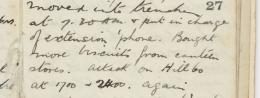 27
moved into trenches
at 7.30 am & put in charge
of extension phone. Bought
more biscuits from canteen
stores. attack on Hill 60
at 1700 - 2400. again